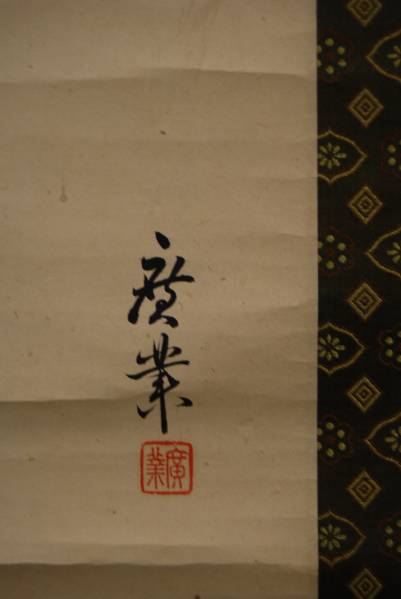 廣業
廣業